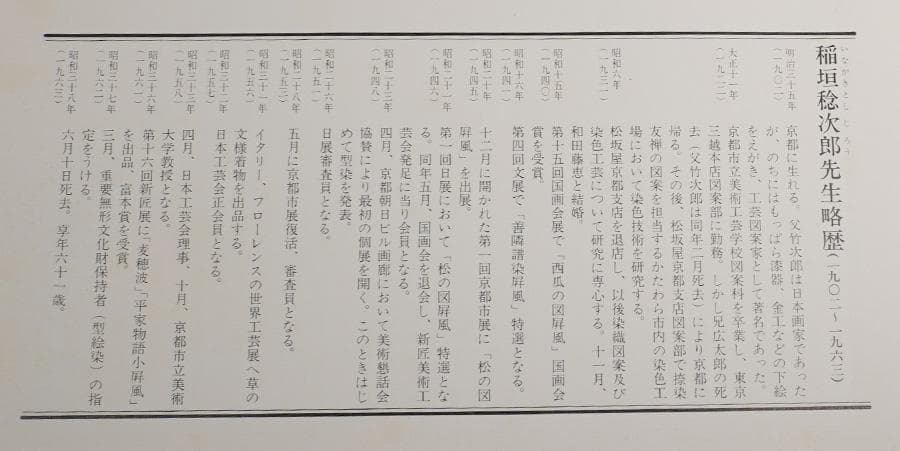 稲垣稔次郎先生略歴(一九〇二～一九六三)
いながきとしじろう
明治三十五年
(一九〇二)
京都に生れる。父竹次郎は日本画家であった
が、のちにはもっぱら漆器、金工などの下絵
をえがき、工芸図案家として著名であった。
大正十一年
(一九二二)
京都市立美術工芸学校図案科を卒業し、東京
三越本店図案部に勤務。しかし兄広太郎の死
去(父竹次郎は同年二月死去)により京都に
帰る。その後、松坂屋京都支店図案部で捺染
友禅の図案を担当するかたわら市内の染色工
場において染色技術を研究する。
昭和六年
(一九三一)
松坂屋京都支店を退店し、以後染織図案及び
染色工芸について研究に専心する。十一月、
和田藤恵と結婚。
昭和十五年
(一九四〇)
第十五回国画会展で「西瓜の図屛風」国画会
賞を受賞。
昭和十六年
(一九四一)
第四回文展で「善隣譜染屛風」特選となる。
昭和二十年
(一九四五)
十二月に開かれた第一回京都市展に「松の図
屛風」を出展。
昭和二十一年
(一九四六)
第一回日展において「松の図屛風」特選とな
る。同年五月、国画会を退会し、新匠美術工
芸会発足に当り会員となる。
昭和二十三年
(一九四八)
四月、京都朝日ビル画廊において美術懇話会
協賛により最初の個展を開く。このときはじ
めて型染を発表。
昭和二十六年
(一九五一)
日展審査員となる。
昭和二十八年
(一九五三)
五月に京都市展復活、審査員となる。
昭和三十一年
(一九五六)
イタリー、フローレンスの世界工芸展へ草の
文様着物を出品する。
昭和三十二年
(一九五七)
日本工芸会正会員となる。
昭和三十三年
(一九五八)
四月、日本工芸会理事、十月、京都市立美術
大学教授となる。
昭和三十六年
(一九六一)
第十六回新匠展に「麦穂波」「平家物語小屛風」
を出品、富本賞を受賞。
昭和三十七年
(一九六二)
三月、重要無形文化財保持者(型絵染)の指
定をうける。
昭和三十八年
(一九六三)
六月十日死去。享年六十一歳。